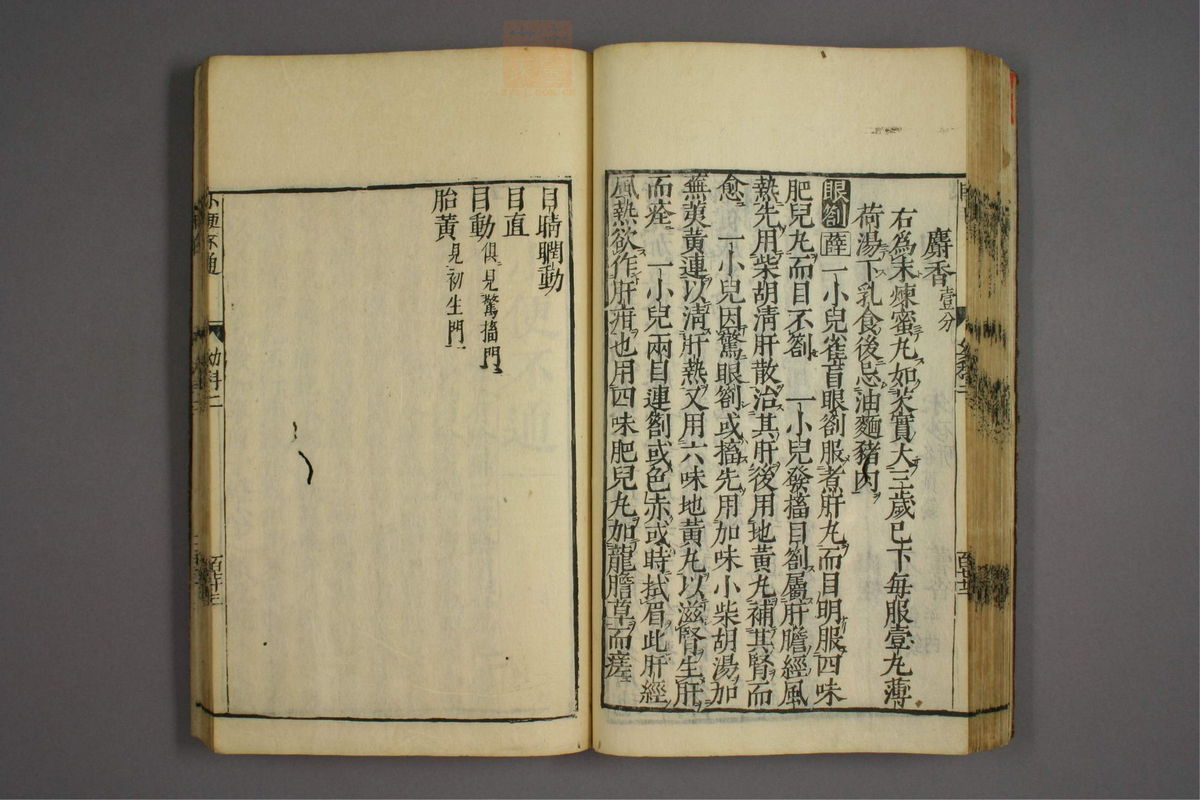 麝香壹分
右為末煉蜜丸如芡實大三歲已下每服壹丸薄
荷湯下乳食後忌油麵豬肉
眼劄薛一小兒雀盲眼劄服煮肝丸而目明服四味
肥兒丸而目不劄一小兒發搐目劄屬肝膽經風
熱先用柴胡清肝散治其肝後用地黃丸補其腎而
愈一小兒因驚眼劄或搐先用加味小柴胡湯加
蕪荑黃連以清肝熱又用六味地黃丸以滋腎生肝
而痊一小兒兩目連劄或色赤或時拭眉此肝經
風熱欲作肝疳也用四味肥兒丸加龍膽草而瘥
目睛瞤動
目直
目動俱見驚搐門
胎黃見初生門
小便不通
幼科二